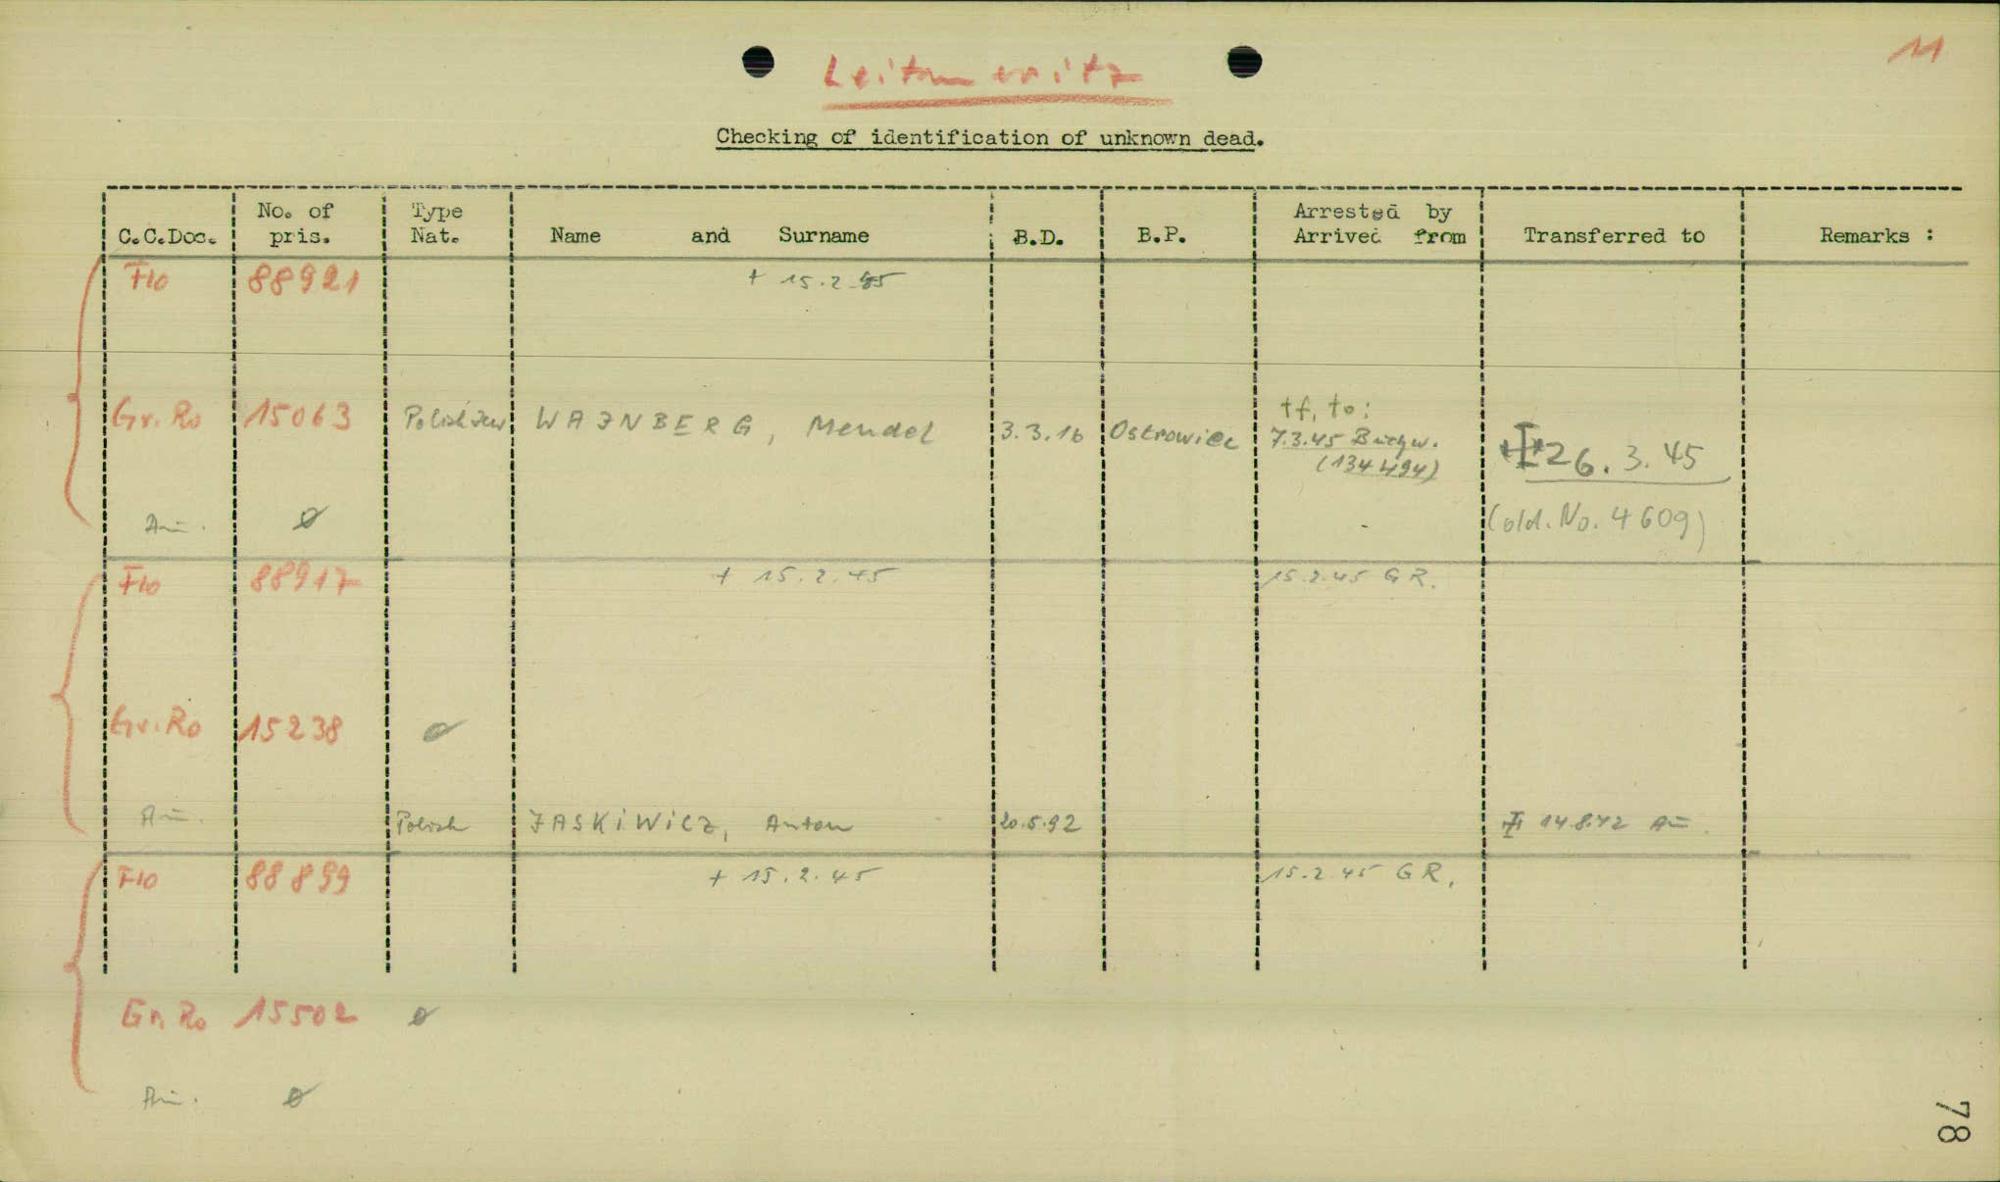 11
Leitmeritz
Checking of identification of unknown dead.
C.C.Doc. No. of pris. Type Nat. Name and Surname B.D. B.P. Arrested by Arrived from Transferred to Remarks :
Flo 88921 + 15.2.45
Gr. Ro 15063 Polish Jew WAJNBERG, Mendel 3.3.16 Ostrowiec tf. to: 7.3.45 Buchw. (134494) 26.3.45
Au. ø (old. No. 4609)
Flo 88917 + 15.2.45 15.2.45 GR.
Gr. Ro 15238 ø
Au. Polish JASKiWiCZ, Anton 20.5.92 14.8.42 Au.
Flo 88899 + 15.2.45 15.2.45 GR.
Gr. Ro 15502 ø
Au. ø
78